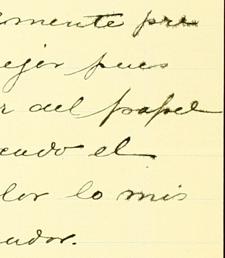 emente pre
ejor pues
r del papel
endo el
lor lo mis
ador.